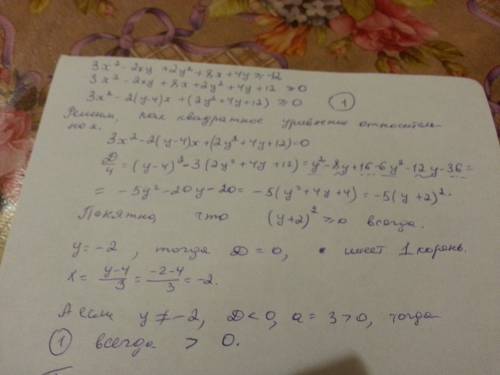 3x² - 2xy + 2y² + 8x + 4y ≥ -12
3x² - 2xy + 8x + 2y² + 4y + 12 ≥ 0
3x² - 2(y-4)x + (2y² + 4y + 12) ≥ 0 ①
Решим, как квадратное уравнение относитель-
но x.
3x² - 2(y-4)x + (2y² + 4y + 12) = 0
D/4 = (y-4)² - 3(2y² + 4y + 12) = y² - 8y + 16 - 6y² - 12y - 36 =
= -5y² - 20y - 20 = -5(y² + 4y + 4) = -5(y+2)².
Понятно что (y+2)² ≥ 0 всегда.
y = -2, тогда D = 0, имеет 1 корень.
x = (y-4)/3 = (-2-4)/3 = -2.
А если y ≠ -2, D < 0, a = 3 > 0, тогда
① всегда > 0.